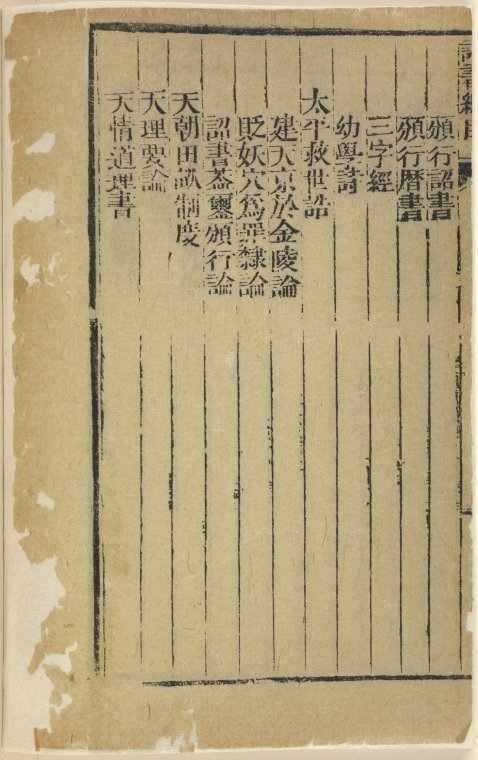 頒行詔書
頒行曆書
三字經
幼學詩
太平救世誥
建天京於金陵論
貶妖穴為罪隸論
詔書蓋璽頒行論
天朝田畝制度
天理要論
天情道理書